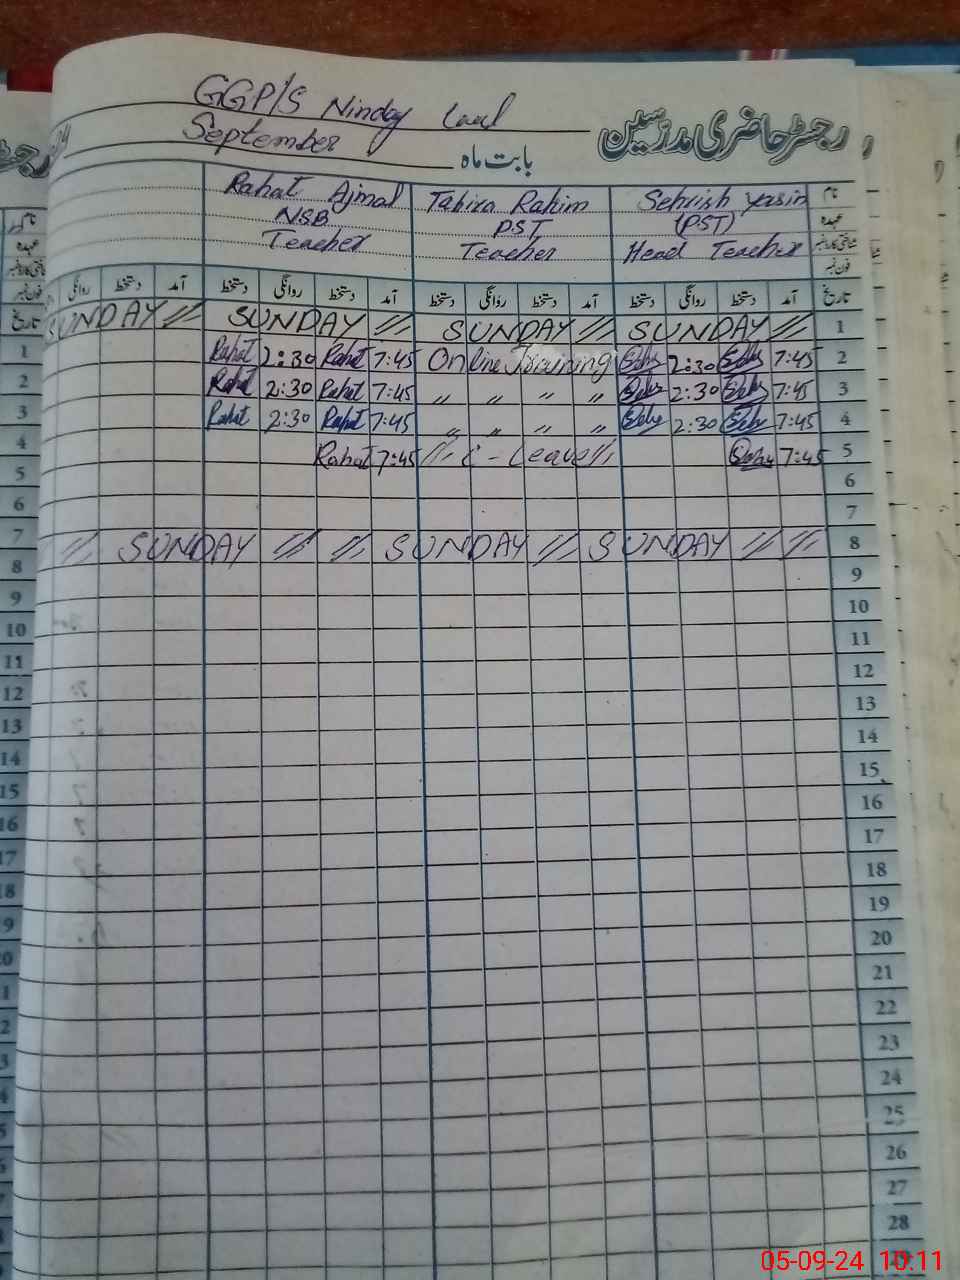 GGP/S Ninday Laal
رجسٹر حاضری مدرسین
September
بابت ماہ
Rahat Ajmal Tahira Rahim Sehrish yasin نام
NSB PST (PST) عہدہ
Teacher Teacher Head Teacher شناختی کارڈ نمبر
فون نمبر
روانگی دستخط آمد دستخط روانگی دستخط آمد دستخط روانگی دستخط آمد دستخط روانگی دستخط آمد تاریخ
SUNDAY // SUNDAY // SUNDAY // SUNDAY // 1
Rahat 2:30 Rahat 7:45 Online Training 2:30 7:45 2
Rahat 2:30 Rahat 7:45 〃 〃 〃 〃 2:30 7:45 3
Rahat 2:30 Rahat 7:45 〃 〃 〃 〃 2:30 7:45 4
Rahat 7:45 // C - Leave // 7:45 5
6
7
// SUNDAY // // SUNDAY // SUNDAY // // 8
9
10
11
12
13
14
15
16
17
18
19
20
21
22
23
24
25
26
27
28
05-09-24 10:11